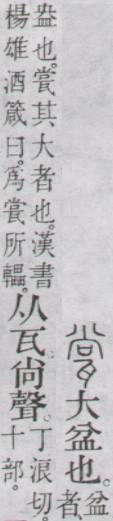 瓽大盆也。盆者
盎也。瓽其大者也。漢書
楊雄酒箴曰。爲瓽所轠。
从瓦。尙聲。丁浪切。
十部。